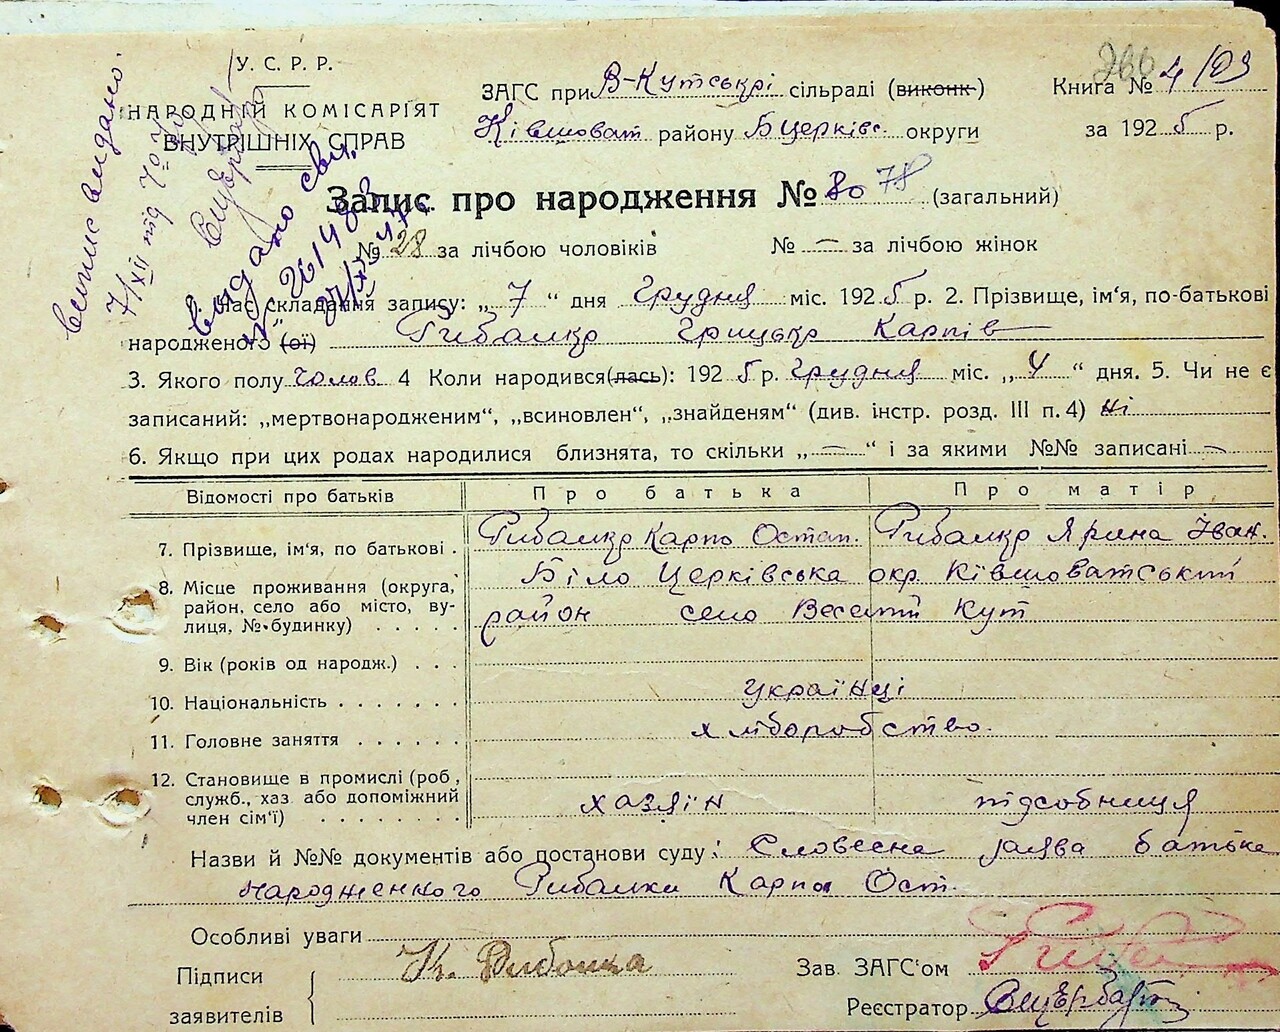 У. С. Р. Р.
НАРОДНІЙ КОМІСАРІЯТ
ВНУТРІШНІХ СПРАВ
ЗАГС при В-Кутській сільраді (виконк-)
Книга № 4/
Ківшоват району Бцерківс. округи
за 1925 р.
Запис про народження № 80 78 (загальний)
№ 28 за лічбою чоловіків № — за лічбою жінок
Час складання запису: „ 7 “ дня Грудня міс. 1925 р. 2. Прізвище, ім'я, по-батькові
народженого (ої) Рибалко Грицько Карпів
3. Якого полу чолов 4 Коли народився(лась): 1925 р. Грудня міс. „ 4 “ дня. 5. Чи не є
записаний: „мертвонародженим“, „всиновлен“, „знайденям“ (див. інстр. розд. III п. 4) Ні
6. Якщо при цих родах народилися близнята, то скільки „ — “ і за якими №№ записані —
Відомості про батьків Про батька Про матір
7. Прізвище, ім'я, по батькові . Рибалко Карпо Остап. Рибалко Ярина Іван.
8. Місце проживання (округа, Біло Церківська окр. Ківшоватський
район, село або місто, ву- район село Веселий Кут
лиця, № будинку) . . . . .
9. Вік (років од народж.) . . .
10. Національність . . . . . . . українці
11. Головне заняття . . . . . . хліборобство.
12. Становище в промислі (роб.,
служб., хаз. або допоміжний хазяїн підсобниця
член сім'ї) . . . . . . . .
Назви й №№ документів або постанови суду: Словесна заява батька
народженного Рибалки Карпа Ост.
Особливі уваги
Підписи
заявителів
К. Рибалка
Зав. ЗАГС'ом
Реєстратор
Випис видано
7/XII під № 78
видано свід.